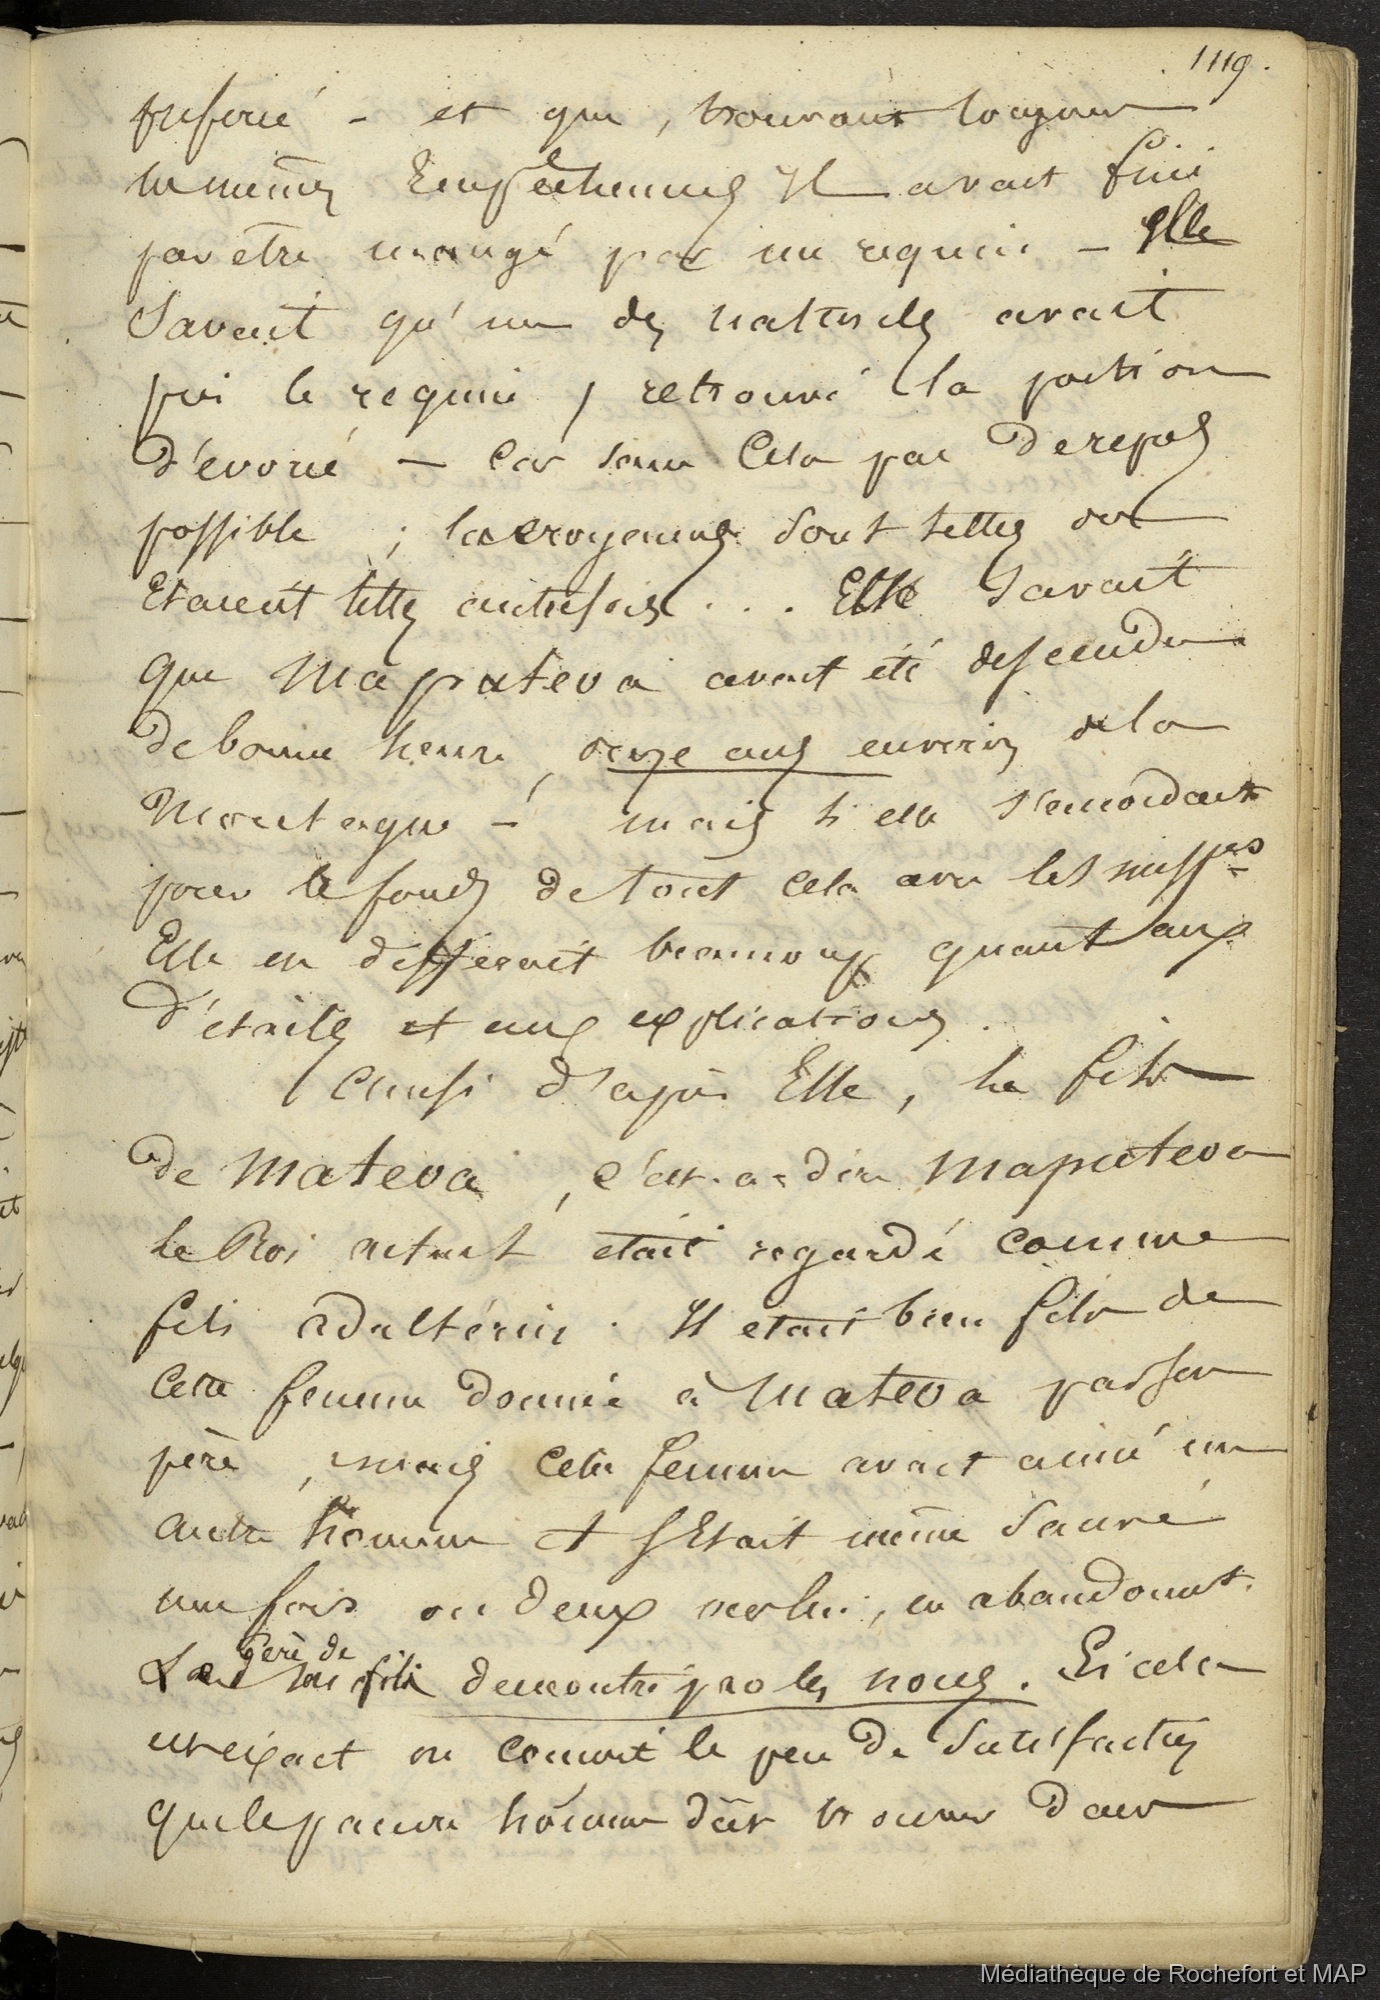 1119.
préféré - et que, trouvant toujours
les mêmes Empêchements Il avait fini
par être mangé par un requin - Elle
Savait qu'un des naturels avait
pris le requin, retrouvé la portion
d'évorée - Car sans Cela pas de repos
possible ; les croyances sont telles ou
Etaient telles autrefois . . . Elle Savait
que Maputeva avait été descendu
de bonne heure, onze ans environ de la
Montagne - mais si elle s'accordait
pour le fond de tout cela avec les miss.res
Elle en différait beaucoup quant aux
d'étails et aux explications.
Ainsi d'après Elle, le fils
de Mateva, c'est-a-dire Maputeva
le Roi actuel était regardé comme
fils adultérin. Il était bien fils de
Cette femme donnée à Mateva par son
père, mais cette femme avait aimé un
autre homme et s'Etait même sauvé
une fois ou deux vers lui, en abandonnt.
père de
son fils demontré par les noms. Si cela
est exact on connoit le peu de satisfaction
que le pauvre homme dût trouver dans
Médiathèque de Rochefort et MAP